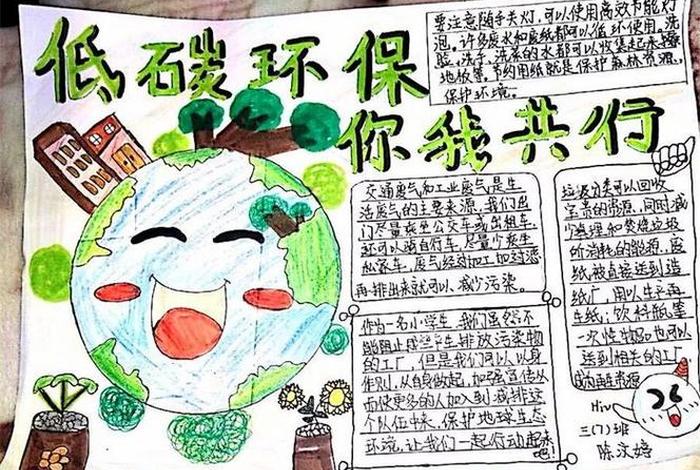 低碳环保
你我共行
要注意随手关灯,可以使用高效节能灯
泡。许多废水和废纸都可以循环使用。洗
脸,洗手,洗菜的水都可以收集起来擦
地板等。节约用纸就是保护森林资源,
保护环境。
交通废气和工业废气是生
活废气的主要来源,我们出
门尽量乘坐公交车或出租车,
还可以骑自行车,尽量少乘坐
私家车,废气经过加工加过滤
再排出来就可以减少污染。
垃圾分类可以回收
宝贵的资源,同时减
少填埋和焚烧垃圾
所消耗的能源,废
纸被直接送到造
纸厂,用以生产再
生纸;饮料瓶等
一次性物品也可以
送到相关的工厂
成为再生资源
作为一名小学生,我们虽然不
能阻止那些产生排放污染物
的工厂,但是我们可以以身
作则,从自身做起,加强宣传从
而使更多的人加入到减排这
个队伍中来,保护地球生态
环境,让我们一起行动起来吧!
Hi
三(7)班